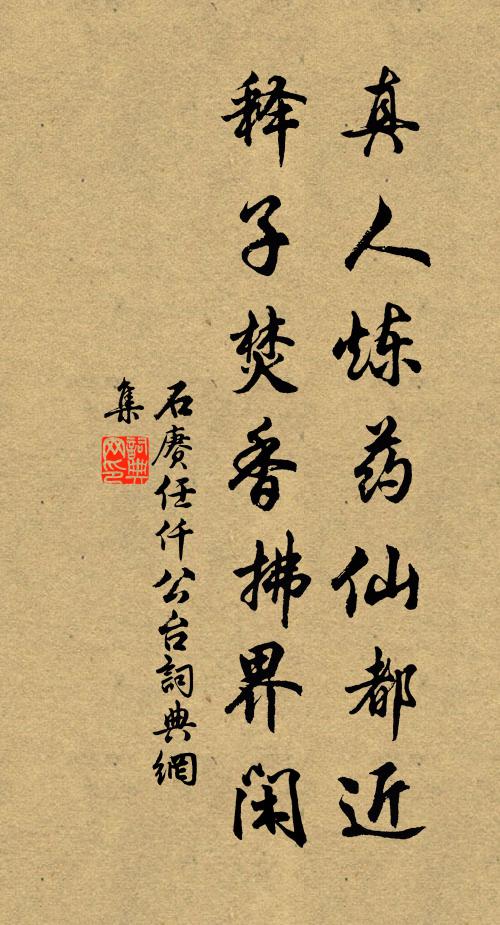 真人炼药仙都近
释子焚香拂界闲
石赓任仟公台詞典網
集
詞典网印